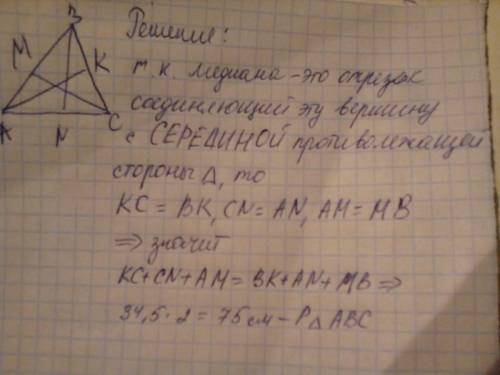 B
M
K
A
N
C
Решение:
т.к. медиана - это отрезок
соединяющий эту вершину
с СЕРЕДИНОЙ противолежащей
стороны Δ, то
KC = BK, CN = AN, AM = MB
=> значит
KC+CN+AM = BK+AN+MB =>
34,5·2 = 75 см - P Δ ABC